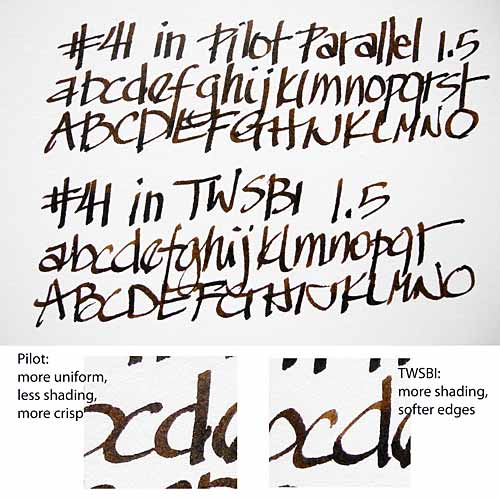 #41 in Pilot Parallel 1.5
abcdefghijklmnopqrst
ABCDEFGHIJKLMNO
#41 in TWSBI 1.5
abcdefghijklmnopqr
ABCDEFGHIJKLMNO
Pilot:
more uniform,
less shading,
more crisp
cd
cd
TWSBI:
more shading,
softer edges